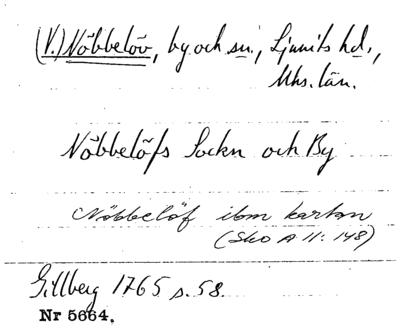 (V.) Nöbbelöv, by och sn., Ljunits hd.,
Mhs. län.
Nöbbelöfs Sockn och By
Nöbbelöf ibm kartan
(Sko A 11: 148)
Gillberg 1765 s. 58.
Nr 5664.